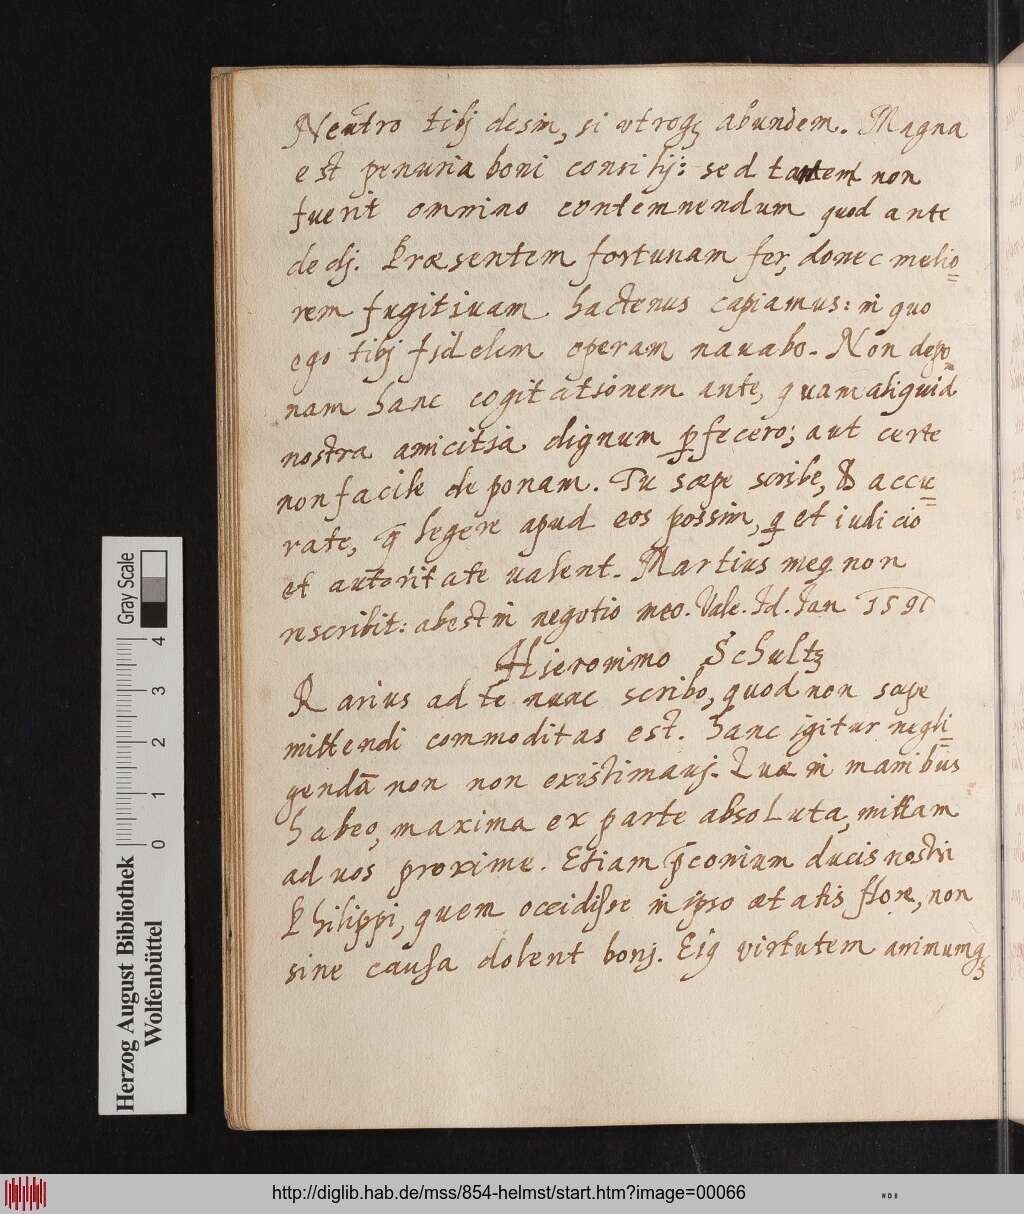 Neutro tibj desim, si vtroqꝫ abundem. Magna
est penuria boni consilij: sed tamen non
fuerit omnino contemnendum quod ante
dedj. Præsentem fortunam fer, donec melio=
rem fugitiuam hactenus capiamus: in quo
ego tibj fidelem operam nauabo. Non depo=
nam hanc cogitationem ante, quam aliquid
nostra amicitia dignum ꝑfecero; aut certe
non facile deponam. Tu sæpe scribe, & accu=
rate, qͫ legere apud eos possim, q et iudicio
et autoritate ualent. Martius meq non
rescribit: abest in negotio meo. Vale. Id. Ian 1591
Hieronimo Schultz
Rarius ad te nunc scribo, quod non sæpe
mittendi commoditas est. Hanc igitur negli=
gendā non non existimauj. Quæ in manibus
habeo, maxima ex parte absoluta, mittam
ad uos proxime. Etiam p̄conium ducis nostri
Philippi, quem occidisse in ipso ætatis flore, non
sine causa dolent bonj. Eiq virtutem animumqꝫ
Herzog August Bibliothek
Wolfenbüttel
Gray Scale
0 1 2 3 4
http://diglib.hab.de/mss/854-helmst/start.htm?image=00066
WDB